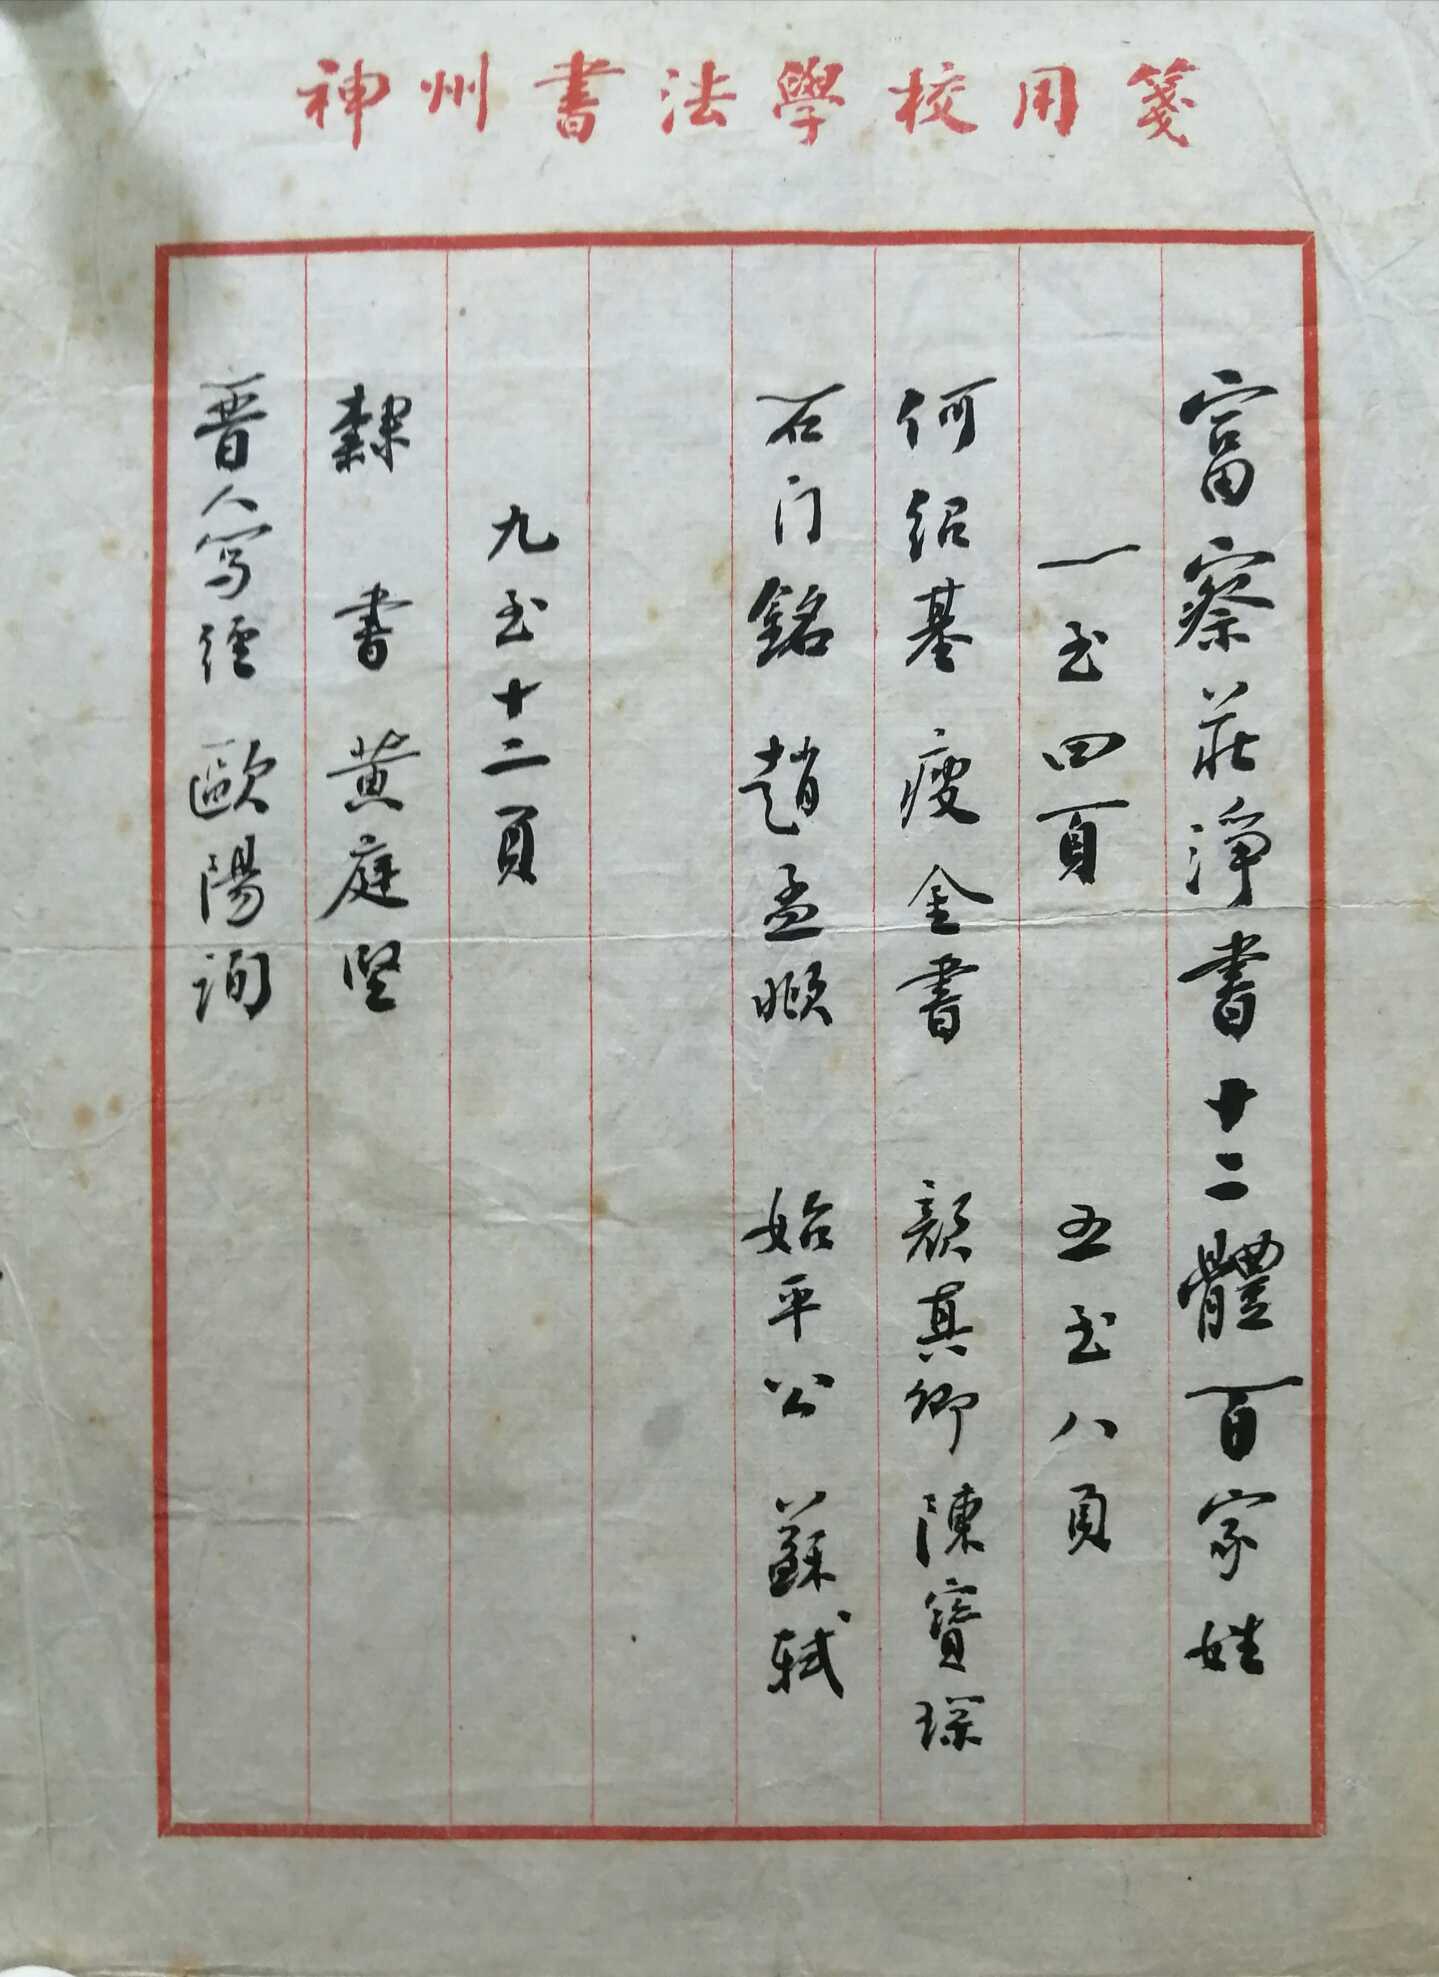 神州書法學校用箋
富察莊淨書十二體百家姓
一至四頁　五至八頁
何紹基 瘦金書　顏真卿 陳寶琛
石门銘 趙孟頫　始平公 蘇軾
九至十二頁
隸書 黄庭堅
晋人寫經 歐陽詢